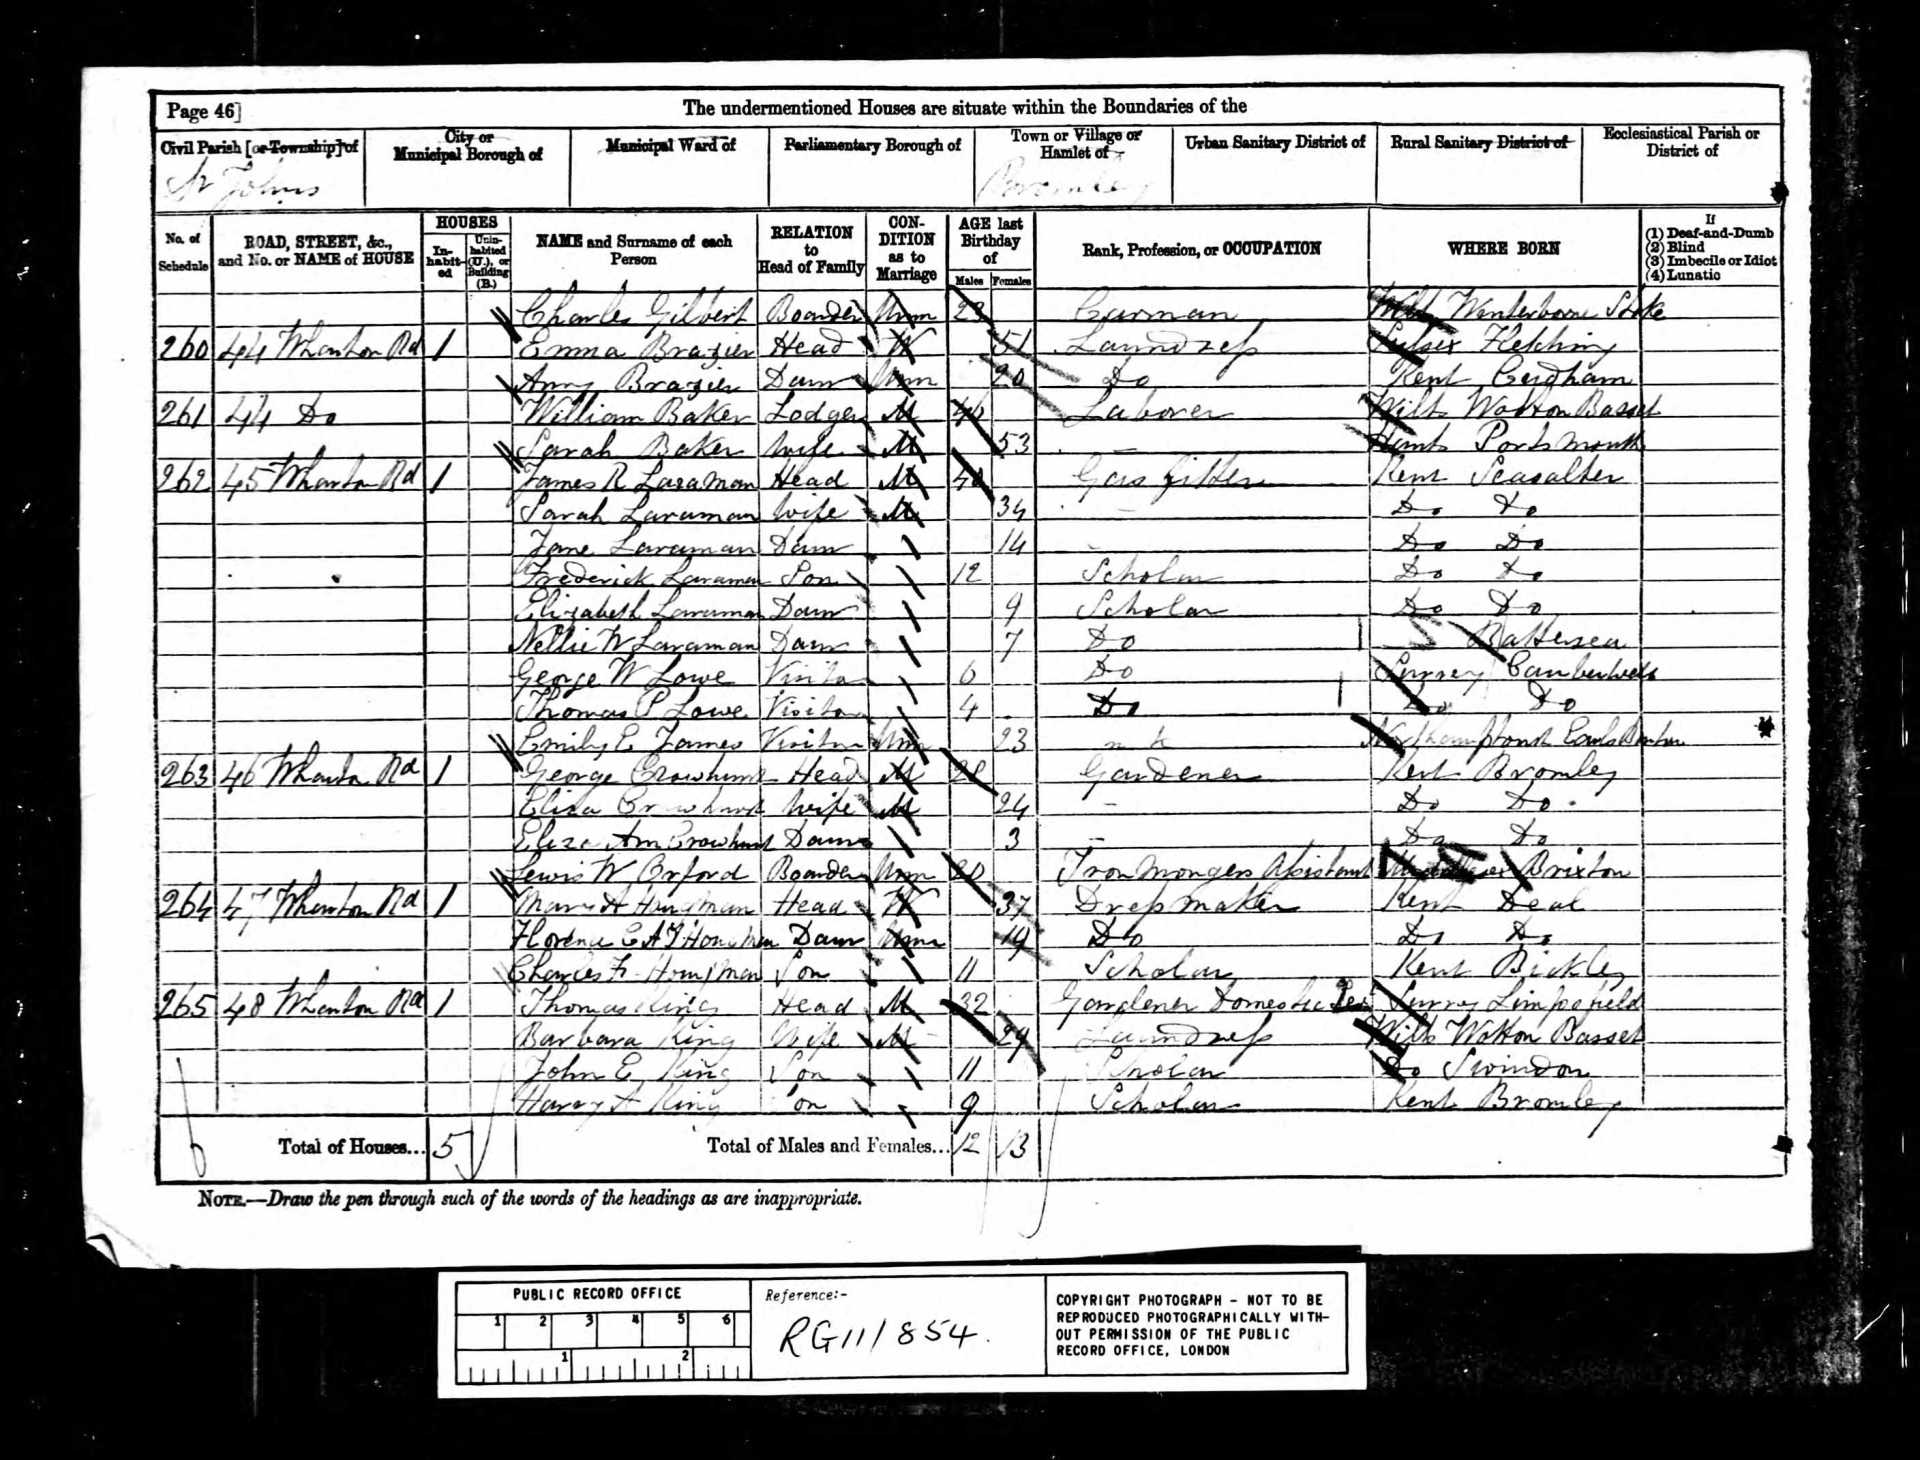 Page 46]
The undermentioned Houses are situate within the Boundaries of the
Civil Parish [or Township] of
City or Municipal Borough of
Municipal Ward of
Parliamentary Borough of
Town or Village or Hamlet of
Urban Sanitary District of
Rural Sanitary District of
Ecclesiastical Parish or District of
St Johns Bromley
No. of Schedule
ROAD, STREET, &c., and No. or NAME of HOUSE
HOUSES
Inhabited
Uninhabited (U.), or Building (B.)
NAME and Surname of each Person
RELATION to Head of Family
CONDITION as to Marriage
AGE last Birthday of
Males Females
Rank, Profession, or OCCUPATION
WHERE BORN
If
(1) Deaf-and-Dumb
(2) Blind
(3) Imbecile or Idiot
(4) Lunatic
Charles Gilbert Boarder Unm 23 Carman Wilts Winterborne Stoke
260 44 Wharton Rd 1 Emma Brazier Head W 51 Laundress Sussex Fletching
Amy Brazier Daur Unm 20 Do Kent Cudham
261 44 Do William Baker Lodger M 46 Laborer Wilts Wotton Basset
Sarah Baker Wife M 53 Hants Portsmouth
262 45 Wharton Rd 1 James R Laraman Head M Gas fitter Kent Seasalter
Sarah Laraman Wife M 34 - Do Do
Jane Laraman Daur 14 Do Do
Frederick Laraman Son 12 Scholar Do Do
Elizabeth Laraman Daur 9 Scholar Do Do
Nellie W Laraman Daur 7 Do Battersea
George W Lowe Visitor 6 Do Surrey Camberwell
Thomas P Lowe Visitor 4 Do Do Do
Emily E James Visitor Unm 23 Northamptonsh Earls Barton
263 46 Wharton Rd 1 George Crowhurst Head M 28 Gardener Kent Bromley
Eliza Crowhurst Wife M 24 - Do Do
Eliza Ann Crowhurst Daur 3 - Do Do
Lewis W Orford Boarder Unm 20 Iron Mongers Assistant Brixton
264 47 Wharton Rd 1 Mary A Honeyman Head W 37 Dress Maker Kent Deal
Florence E A Honeyman Daur Unm 19 Do Do Do
Charles F Honeyman Son 11 Scholar Kent Bickley
265 48 Wharton Rd 1 Thomas King Head M 32 Gardener Domestic Ser Surrey Limpsfield
Barbara King Wife M 29 Laundress Wilts Wotton Basset
John E King Son 11 Scholar Do Swindon
Harry A King Son 9 Scholar Kent Bromley
Total of Houses... 5 Total of Males and Females... 12 13
NOTE.—Draw the pen through such of the words of the headings as are inappropriate.
PUBLIC RECORD OFFICE
1 2 3 4 5 6
1 2
Reference:-
RG11/854.
COPYRIGHT PHOTOGRAPH - NOT TO BE
REPRODUCED PHOTOGRAPHICALLY WITH-
OUT PERMISSION OF THE PUBLIC
RECORD OFFICE, LONDON